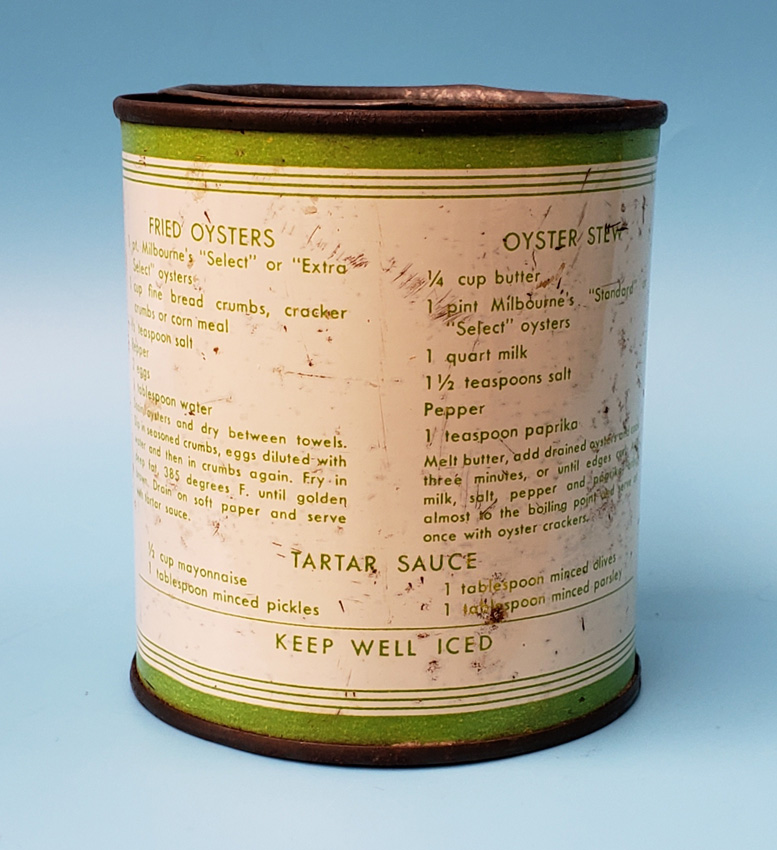 FRIED OYSTERS
pt. Milbourne's "Select" or "Extra
Select" oysters
cup fine bread crumbs, cracker
crumbs or corn meal
teaspoon salt
eggs
tablespoon water
oysters and dry between towels.
in seasoned crumbs, eggs diluted with
and then in crumbs again. Fry in
fat, 385 degrees F. until golden
Drain on soft paper and serve
tartar sauce.
OYSTER STEW
¼ cup butter
1 pint Milbourne's "Standard" or
"Select" oysters
1 quart milk
1½ teaspoons salt
Pepper
1 teaspoon paprika
Melt butter, add drained oysters and
three minutes, or until edges
milk, salt, pepper and paprika
almost to the boiling point and serve
once with oyster crackers.
TARTAR SAUCE
½ cup mayonnaise
1 tablespoon minced pickles
1 tablespoon minced olives
1 tablespoon minced parsley
KEEP WELL ICED